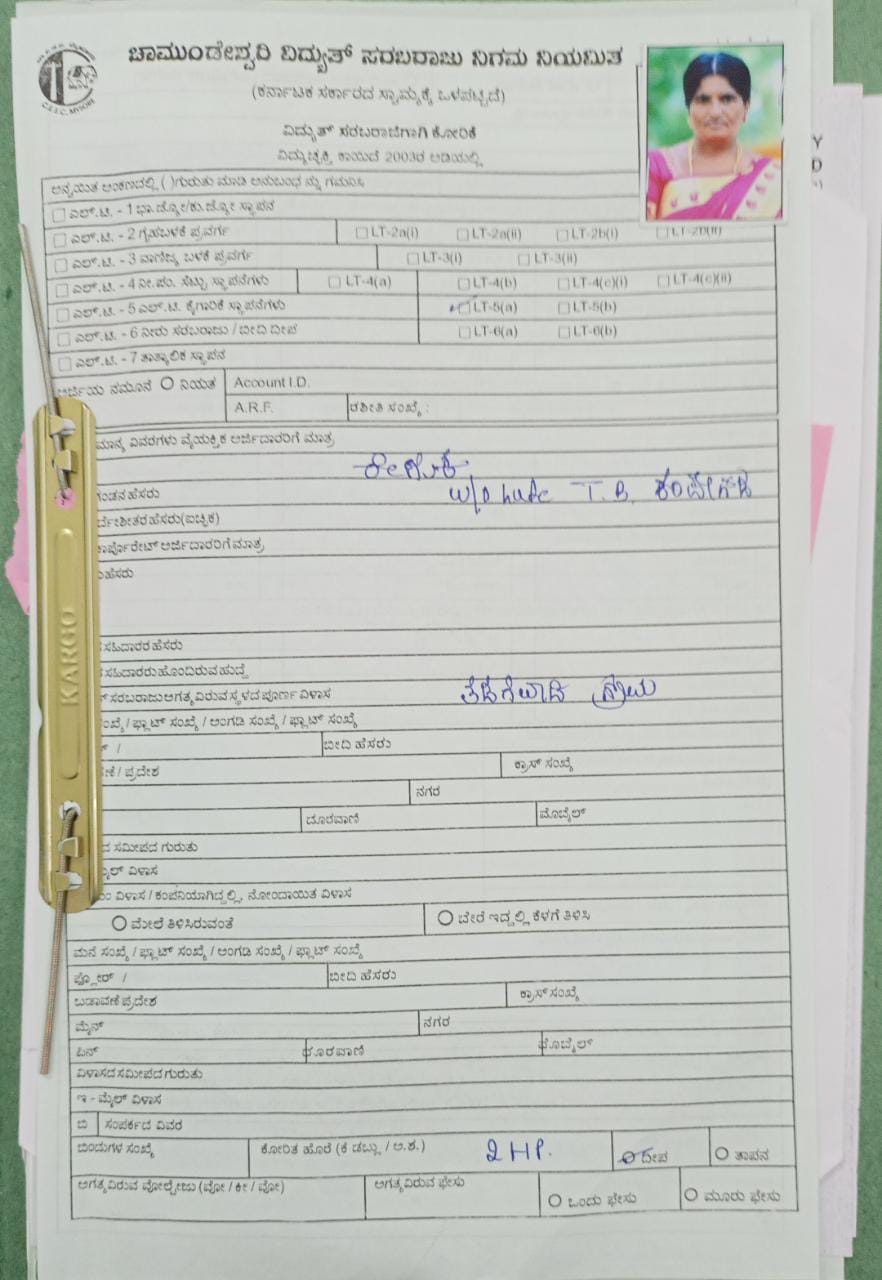 ಚಾಮುಂಡೇಶ್ವರಿ ವಿದ್ಯುತ್ ಸರಬರಾಜು ನಿಗಮ ನಿಯಮಿತ
(ಕರ್ನಾಟಕ ಸರ್ಕಾರದ ಸ್ವಾಮ್ಯಕ್ಕೆ ಒಳಪಟ್ಟಿದೆ)
ವಿದ್ಯುತ್ ಸರಬರಾಜಿಗಾಗಿ ಕೋರಿಕೆ
ವಿದ್ಯುಚ್ಛಕ್ತಿ ಕಾಯಿದೆ 2003ರ ಅಡಿಯಲ್ಲಿ
ಅನ್ವಯಿತ ಅಂಕಣದಲ್ಲಿ ( )ಗುರುತು ಮಾಡಿ ಅನುಬಂಧ ನ್ನು ಗಮನಿಸಿ
ಎಲ್.ಟಿ. - 1 ಭಾ.ಜ್ಯೋ/ಕು.ಜ್ಯೋ ಸ್ಥಾಪನ
ಎಲ್.ಟಿ. - 2 ಗೃಹಬಳಕೆ ಪ್ರವರ್ಗ LT-2a(i) LT-2a(ii) LT-2b(i) LT-2b(ii)
ಎಲ್.ಟಿ. - 3 ವಾಣಿಜ್ಯ ಬಳಕೆ ಪ್ರವರ್ಗ LT-3(i) LT-3(ii)
ಎಲ್.ಟಿ. - 4 ನೀ.ಪಂ. ಸೆಟ್ಟು ಸ್ಥಾಪನೆಗಳು LT-4(a) LT-4(b) LT-4(c)(i) LT-4(c)(ii)
ಎಲ್.ಟಿ. - 5 ಎಲ್.ಟಿ. ಕೈಗಾರಿಕೆ ಸ್ಥಾಪನೆಗಳು LT-5(a) LT-5(b)
ಎಲ್.ಟಿ. - 6 ನೀರು ಸರಬರಾಜು / ಬೀದಿ ದೀಪ LT-6(a) LT-6(b)
ಎಲ್.ಟಿ. - 7 ತಾತ್ಕಾಲಿಕ ಸ್ಥಾಪನ
ಅರ್ಜಿಯ ನಮೂನೆ ನಿಯತ Account I.D.
A.R.F. ರಶೀತಿ ಸಂಖ್ಯೆ :
ಮಾನ್ಯ ವಿವರಗಳು ವೈಯಕ್ತಿಕ ಅರ್ಜಿದಾರರಿಗೆ ಮಾತ್ರ
ಗಂಡನ ಹೆಸರು W/o Late T. B. ಕೆಂಪೇಗೌಡ
ರ್ದೇಶಿತರ ಹೆಸರು(ಐಚ್ಛಿಕ)
ಕಾರ್ಪೊರೇಟ್ ಅರ್ಜಿದಾರರಿಗೆ ಮಾತ್ರ
ಹೆಸರು
ಸಹಿದಾರರ ಹೆಸರು
ಸಹಿದಾರರು ಹೊಂದಿರುವ ಹುದ್ದೆ
ಸರಬರಾಜು ಅಗತ್ಯವಿರುವ ಸ್ಥಳದ ಪೂರ್ಣ ವಿಳಾಸ ಗ್ರಾಮ
ಸಂಖ್ಯೆ / ಫ್ಲಾಟ್ ಸಂಖ್ಯೆ / ಅಂಗಡಿ ಸಂಖ್ಯೆ / ಫ್ಲಾಟ್ ಸಂಖ್ಯೆ
/ ಬೀದಿ ಹೆಸರು
ಣೆ / ಪ್ರದೇಶ ಕ್ರಾಸ್ ಸಂಖ್ಯೆ
ನಗರ
ದೂರವಾಣಿ ಮೊಬೈಲ್
ದ ಸಮೀಪದ ಗುರುತು
ಮೈಲ್ ವಿಳಾಸ
ವಿಳಾಸ / ಕಂಪನಿಯಾಗಿದ್ದಲ್ಲಿ, ನೋಂದಾಯಿತ ವಿಳಾಸ
ಮೇಲೆ ತಿಳಿಸಿರುವಂತೆ ಬೇರೆ ಇದ್ದಲ್ಲಿ ಕೆಳಗೆ ತಿಳಿಸಿ
ಮನೆ ಸಂಖ್ಯೆ / ಫ್ಲಾಟ್ ಸಂಖ್ಯೆ / ಅಂಗಡಿ ಸಂಖ್ಯೆ / ಫ್ಲಾಟ್ ಸಂಖ್ಯೆ
ಫ್ಲೋರ್ / ಬೀದಿ ಹೆಸರು
ಬಡಾವಣೆ ಪ್ರದೇಶ ಕ್ರಾಸ್ ಸಂಖ್ಯೆ
ಮೈನ್ ನಗರ
ಪಿನ್ ದೂರವಾಣಿ ಮೊಬೈಲ್
ವಿಳಾಸದ ಸಮೀಪದ ಗುರುತು
ಇ - ಮೈಲ್ ವಿಳಾಸ
ಬಿ ಸಂಪರ್ಕದ ವಿವರ
ಬಿಂದುಗಳ ಸಂಖ್ಯೆ ಕೋರಿತ ಹೊರೆ (ಕೆ ಡಬ್ಲು / ಅ.ಶ.) 2 HP. ದೀಪ ತಾಪನ
ಅಗತ್ಯವಿರುವ ವೋಲ್ಟೇಜು (ವೋ / ಕೀ / ವೋ) ಅಗತ್ಯವಿರುವ ಫೇಸು ಒಂದು ಫೇಸು ಮೂರು ಫೇಸು
KARGO